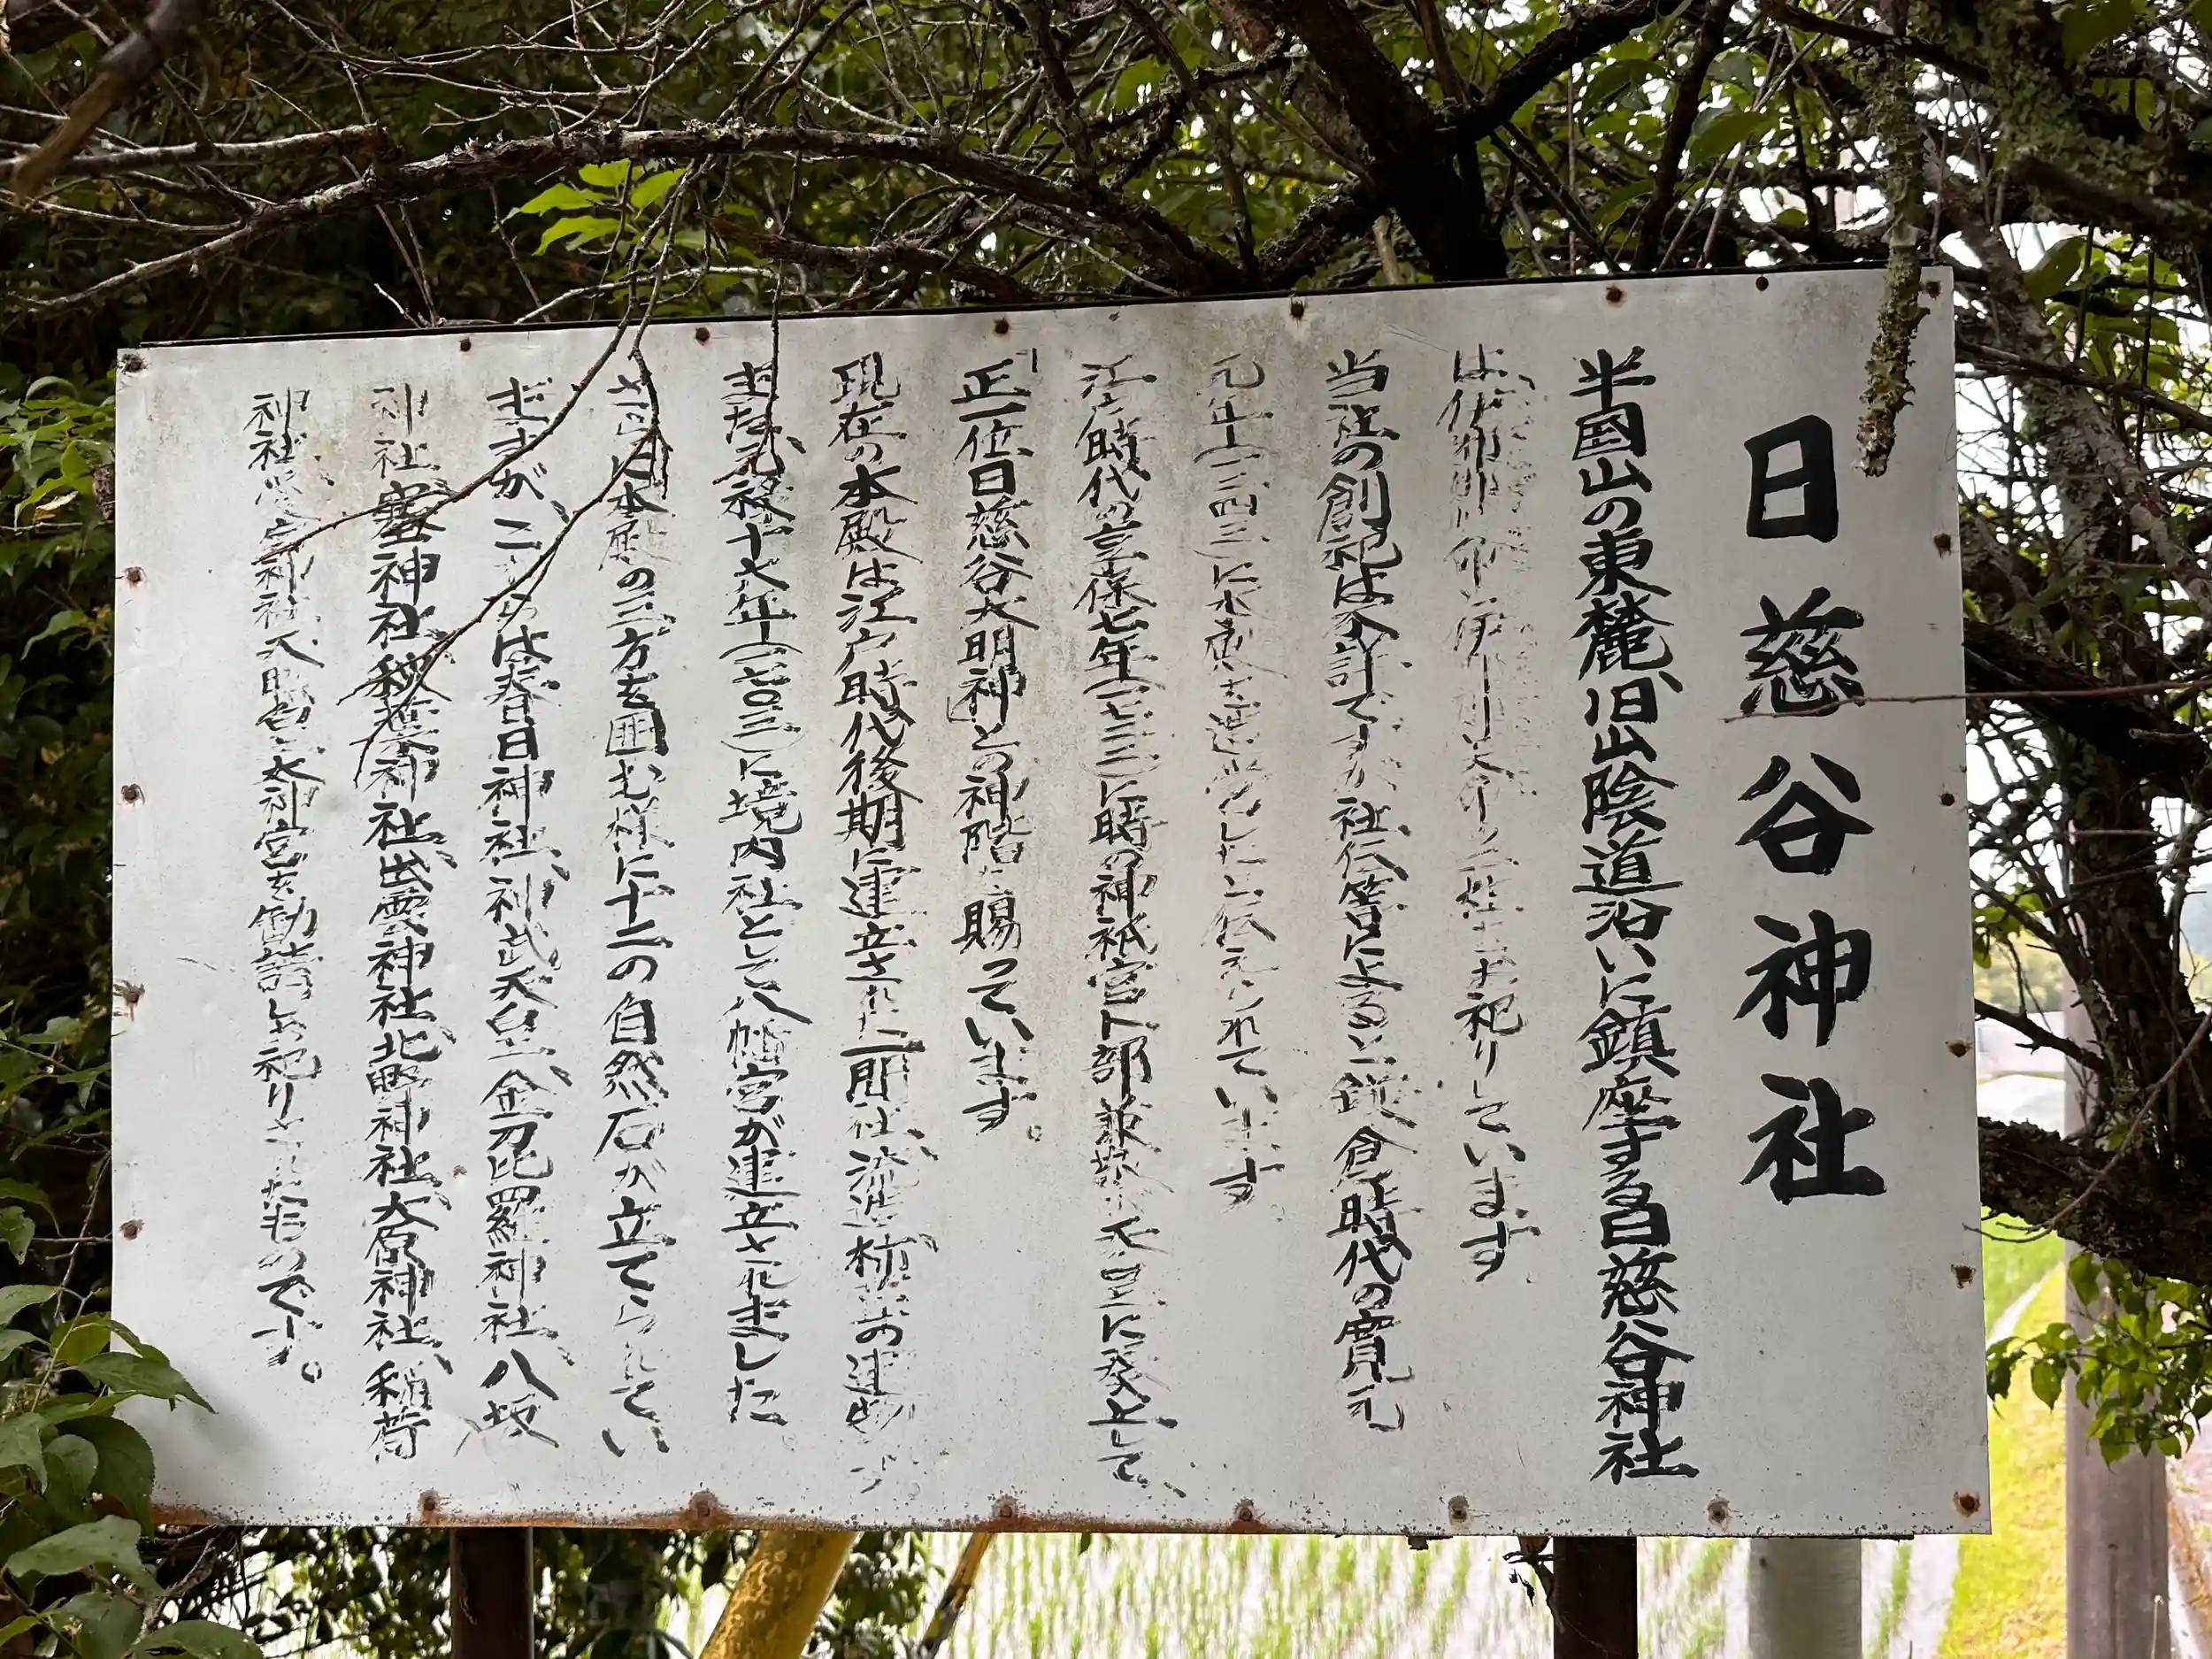 日慈谷神社
半国山の東麓、旧山陰道沿いに鎮座する日慈谷神社
は、 二柱をお祀りしています
当社の創祀は不詳ですが、社伝等によると、鎌倉時代の寛元
元年(一二四三)に 伝えられています。
江戸時代の享保七年(一七二二)に時の神祇官卜部兼敬が天皇に奏上して、
「正一位日慈谷大明神」との神階を賜っています。
現在の本殿は江戸時代後期に建立された一間社、流造、杮葺の建物で、
また元禄十六年(一七〇三)に境内社として八幡宮が建立されました。
さらに本殿の三方を囲む様に十二の自然石が立てられてい
ますが、これらは春日神社、神武天皇、金刀比羅神社、八坂
神社、 神社、秋葉神社、出雲神社、北野神社、大原神社、稲荷
神社、愛宕神社、天照皇大神宮を勧請しお祀りされたものです。